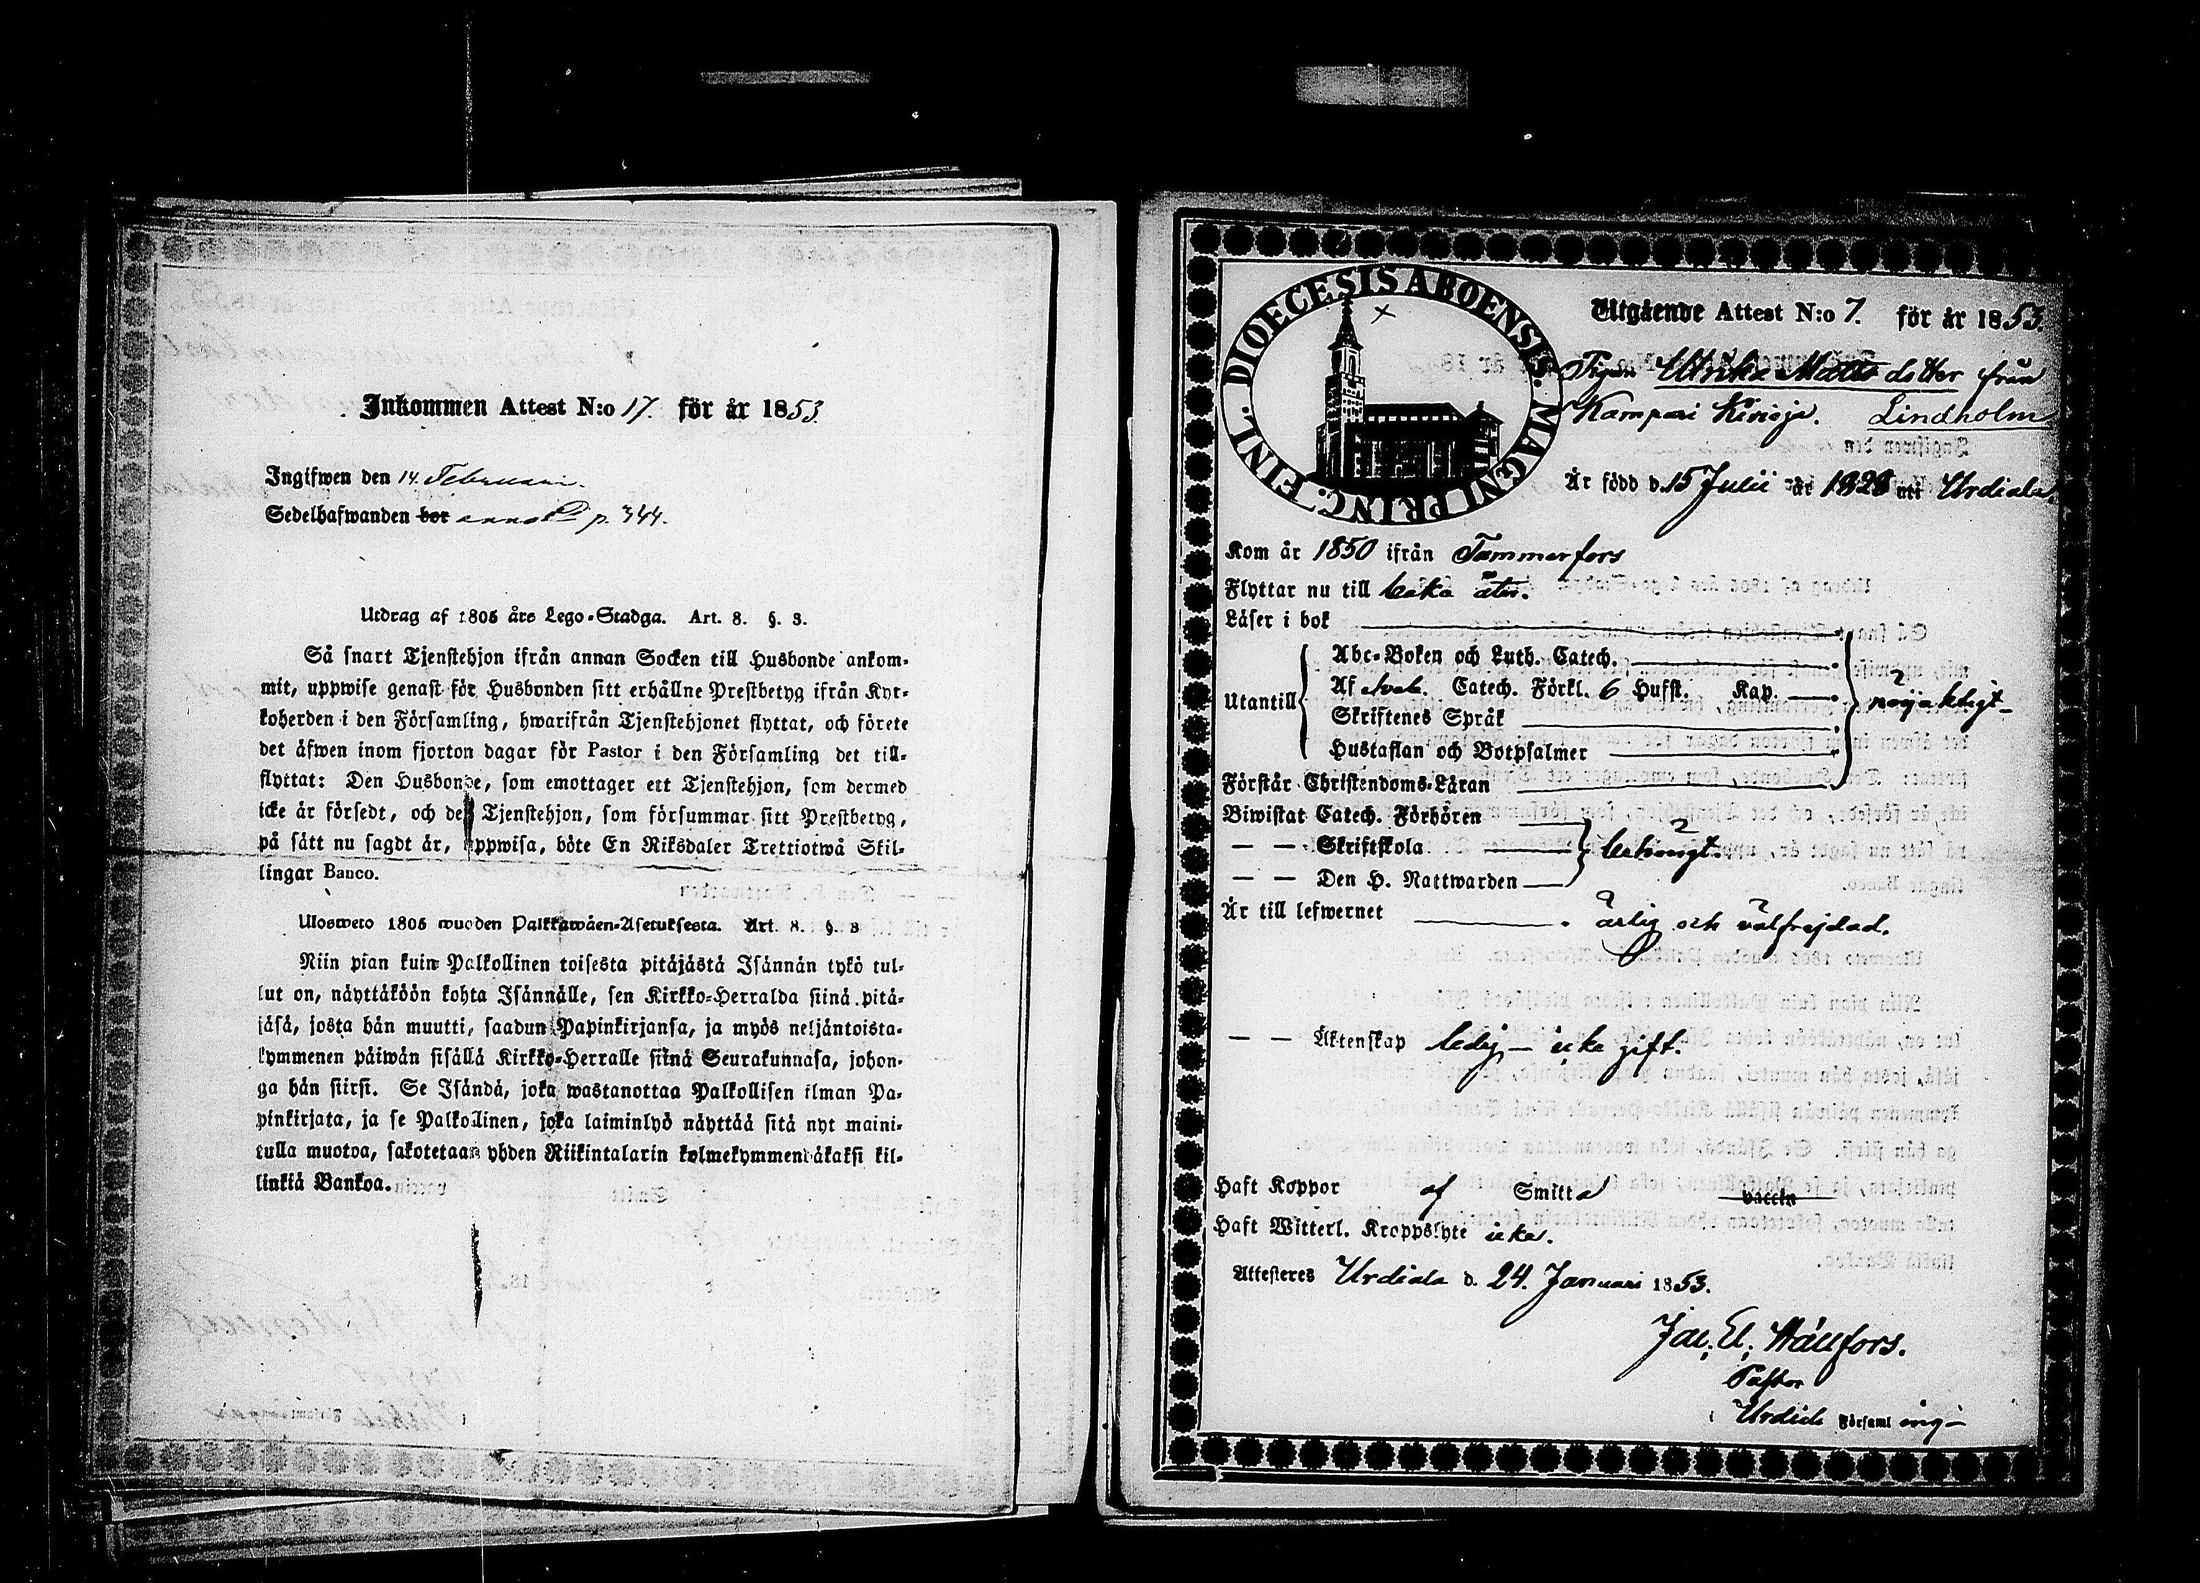 Inkommen Attest N:o 17. för år 1853
Ingifwen den 14 Februari.
Sedelhafwanden bor p. 344.
Utdrag af 1805 års Lego-Stadga. Art. 8. §. 3.
Så snart Tjenstehjon ifrån annan Socken till Husbonde ankom-
mit, uppwise genast för Husbonden sitt erhållne Prestbetyg ifrån Kyr-
koherden i den Församling, hwarifrån Tjenstehjonet flyttat, och förete
det äfwen inom fjorton dagar för Pastor i den Församling det till-
flyttat: Den Husbonde, som emottager ett Tjenstehjon, som dermed
icke är försedt, och det Tjenstehjon, som försummar sitt Prestbetyg,
på sätt nu sagdt är, uppwisa, böte En Riksdaler Trettiotwå Skil-
lingar Banco.
Ulosweto 1805 wuoden Palkkawäen-Asetuksesta. Art. 8. §. 3
Niin pian kuin Palkollinen toisesta pitäjästä Isännän tykö tul-
lut on, näyttäköön kohta Isännälle, sen Kirkko-Herralda siinä pitä-
jäsä, josta hän muutti, saadun Papinkirjansa, ja myös neljäntoista-
kymmenen päiwän sisällä Kirkko-Herralle siinä Seurakunnasa, johon-
ga hän siirsi. Se Isändä, joka wastanottaa Palkollisen ilman Pa-
pinkirjata, ja se Palkollinen, joka laiminlyö näyttää sitä nyt maini-
tulla muotoa, sakotetaan yhden Riikintalarin kolmekymmendäkaksi kil-
linkiä Bankoa.
FINL. DIOECESIS ABOENSIS. MAGNI PRINC.
Utgående Attest N:o 7. för år 1853.
Pigan Ulrika Matts dotter från
Kampari Kirioja. Lindholm
Är född d. 15 Julii år 1828 uti Urdiala
Kom år 1850 ifrån Tammerfors
Flyttar nu till åter.
Läser i bok
Abc-Boken och Luth. Catech.
Utantill Af Catech. Förkl. 6 Hufst. Kap.
Skriftenes Språk
nöjaktigt
Hustaflan och Botpsalmer
Förstår Christendoms-Läran
Biwistat Catech. Förhören
— — Skriftskola behörigt.
— — Den H. Nattwarden
Är till lefwernet ärlig och välfrejdad.
— — Äktenskap ledig — icke gift.
Haft Koppor af Smitta vaccin
Haft Witterl. Kroppslyte icke.
Attesteres Urdiala d. 24. Januari 1853.
Pastor
i Urdiala Församling